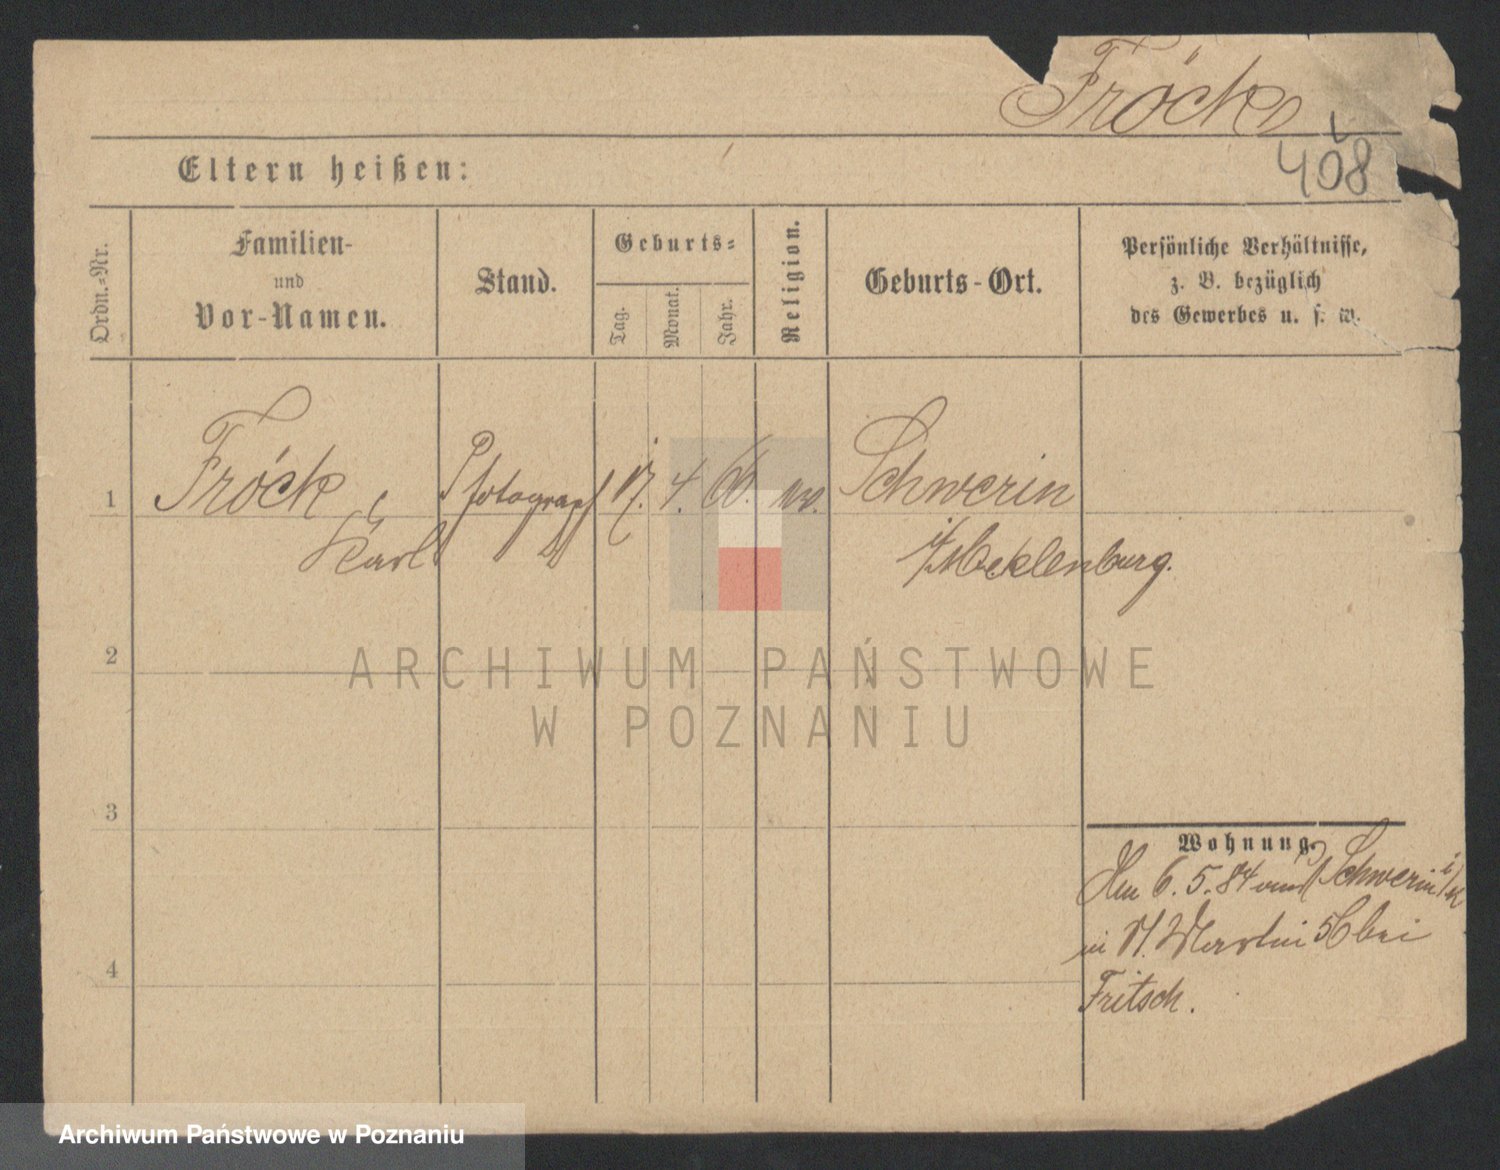 Fröck
408
Eltern heißen:
Ordn.-Nr.
Familien-
und
Vor-Namen.
Stand.
Geburts-
Tag.
Monat.
Jahr.
Religion.
Geburts-Ort.
Persönliche Verhältnisse,
z. B. bezüglich
des Gewerbes u. s. w.
1 Fröck, Pfotograpf 17. 4. 60. ev. Schwerin
Karl i/Mecklenburg.
2
ARCHIWUM PAŃSTWOWE
W POZNANIU
3
Wohnung.
Am 6. 5. 84 aus Schwerin i/M
in St. Martin 56 bei
Fritsch.
4
Archiwum Państwowe w Poznaniu